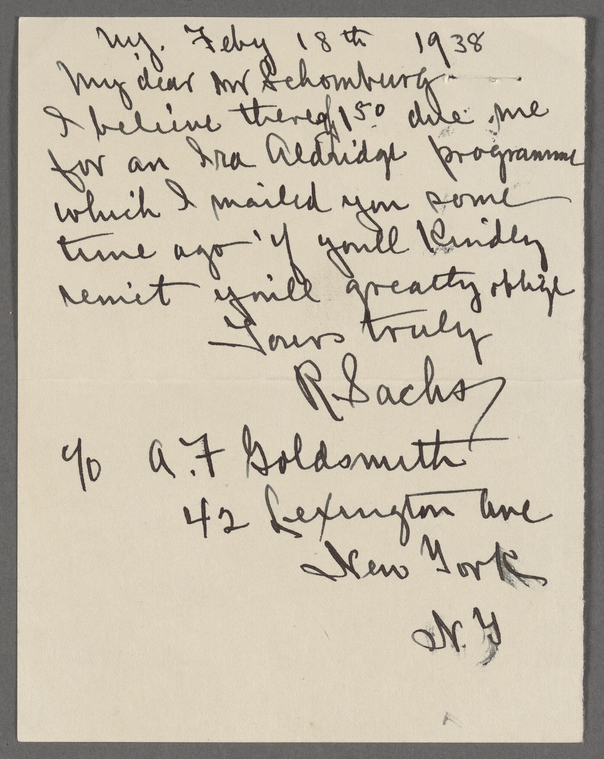 N.Y. Feby 18th 1938
My dear Mr Schomburg
I believe there is 1.50 due me
for an Ira Aldridge programme
which I mailed you some
time ago if you'll Kindly
remit you'll greatly oblige
Yours truly
R. Sachs
c/o A. F Goldsmith
42 Lexington Ave
New York
N. Y